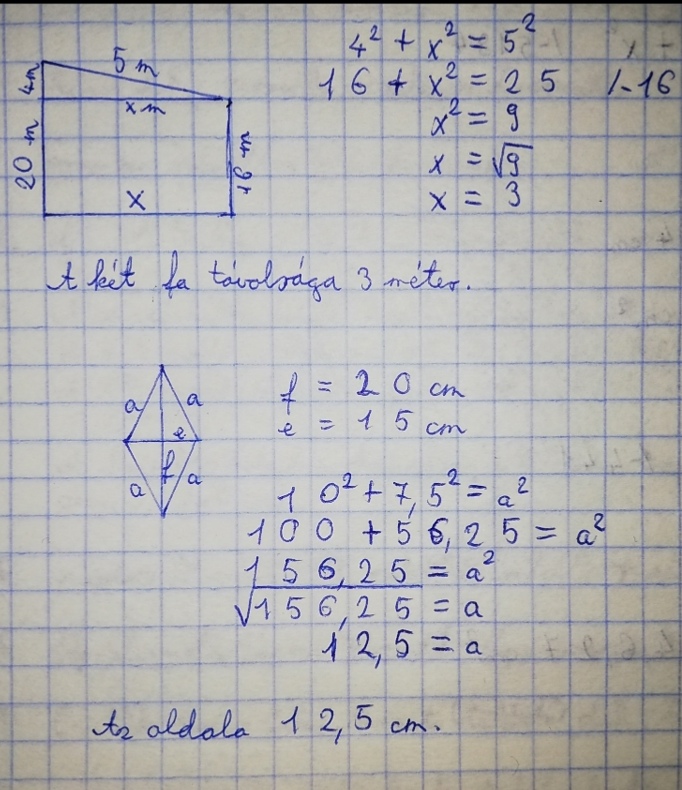 5 m
4m
x m
20 m
16 m
x
4² + x² = 5²
16 + x² = 25 /-16
x² = 9
x = √9
x = 3
A két fa távolsága 3 méter.
a a
e
f
a a
f = 20 cm
e = 15 cm
10² + 7,5² = a²
100 + 56,25 = a²
156,25 = a²
√156,25 = a
12,5 = a
Az oldala 12,5 cm.